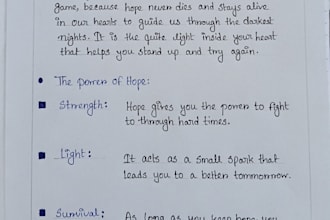 game, because hope never dies and stays alive
in our hearts to guide us through the darkest
nights. It is the quite light inside your heart
that helps you stand up and try again.
The power of Hope:
Strength: Hope gives you the power to fight
to through hard times.
Light: It acts as a small spark that
leads you to a better tommorrow.
Survival: As long as you keep hope you